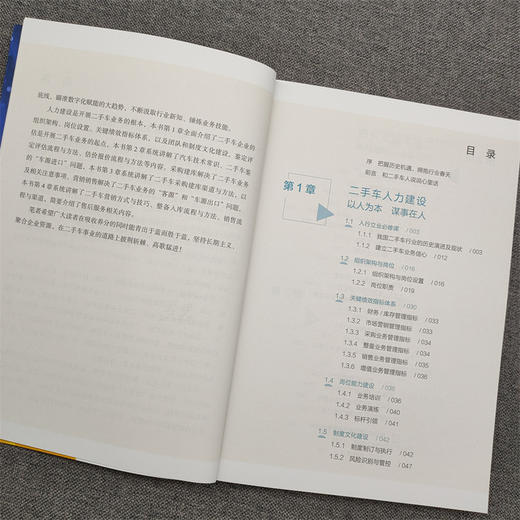 底线、瞄准数字化赋能的大趋势，不断汲取行业新知、锤炼业务技能。
人力建设是开展二手车业务的根本，本书第1章全面介绍了二手车企业的
组织架构、岗位设置、关键绩效指标体系，以及团队和制度文化建设。鉴定评
估是开展二手车业务的起点，本书第2章系统讲解了汽车技术常识、二手车鉴
定评估流程与方法、估价报价流程与方法等内容。采购建库解决了二手车业务
的“车源进口”问题，本书第3章系统讲解了二手车采购建库渠道与方法，以
及相关注意事项。营销销售解决了二手车业务的“客源”和“车源出口”问题，
本书第4章系统讲解了二手车营销方式与技巧、整备入库流程与方法、销售流
程与渠道，简要介绍了售后服务相关内容。
笔者希望广大读者在吸收养分的同时能青出于蓝而胜于蓝，坚持长期主义，
聚合企业资源，在二手车事业的道路上披荆斩棘、高歌猛进！
目 录
序 把握历史机遇，拥抱行业春天
前言 和二手车人说说心里话
第1章
二手车人力建设
以人为本 谋事在人
1.1 入行立业必修课 / 003
1.1.1 我国二手车行业的历史演进及现状 / 003
1.1.2 建立二手车业务信心 / 012
1.2 组织架构与岗位 / 016
1.2.1 组织架构与岗位设置 / 016
1.2.2 岗位职责 / 019
1.3 关键绩效指标体系 / 030
1.3.1 财务 / 库存管理指标 / 030
1.3.2 市场营销管理指标 / 033
1.3.3 采购业务管理指标 / 033
1.3.4 整备业务管理指标 / 034
1.3.5 销售业务管理指标 / 035
1.3.6 增值业务管理指标 / 036
1.4 岗位能力建设 / 036
1.4.1 业务培训 / 036
1.4.2 业务演练 / 040
1.4.3 标杆引领 / 041
1.5 制度文化建设 / 042
1.5.1 制度制订与执行 / 042
1.5.2 风险识别与管控 / 047